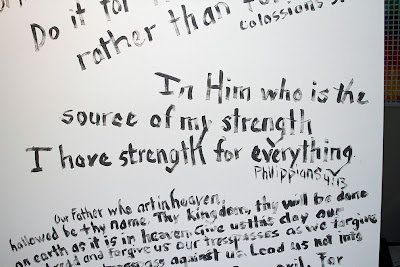 Do it for
rather than for
Colossians 3:
In Him who is the
source of my strength
I have strength for everything.
Philippians 4:13
Our Father who art in heaven,
hallowed be thy name. Thy kingdom, thy will be done
on earth as it is in heaven. Give us this day our
bread and forgive us our tresspasses as we forgive
against us. Lead us not into
For